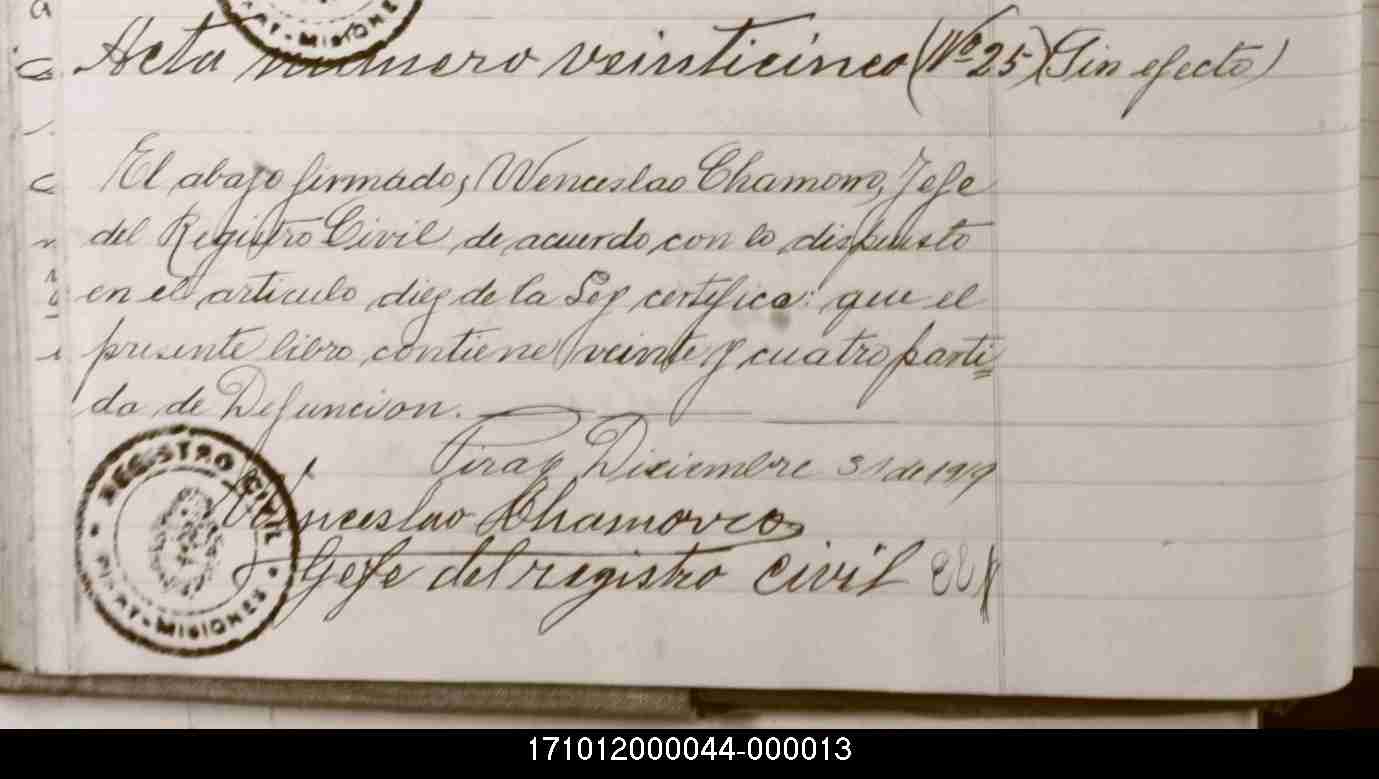 Y-MISIONES
Acta numero veinticinco (Nº 25) (Sin efecto)
El abajo firmado, Wenceslao Chamorro, Jefe
del Registro Civil de acuerdo con lo dispuesto
en el articulo diez de la Ley certifica: que el
presente libro contiene veinte y cuatro parti=
da de Defuncion.
Piray Diciembre 31 de 1919
Wenceslao Chamorro
Gefe del registro civil
REGISTRO CIVIL
PIRAY-MISIONES
171012000044-000013